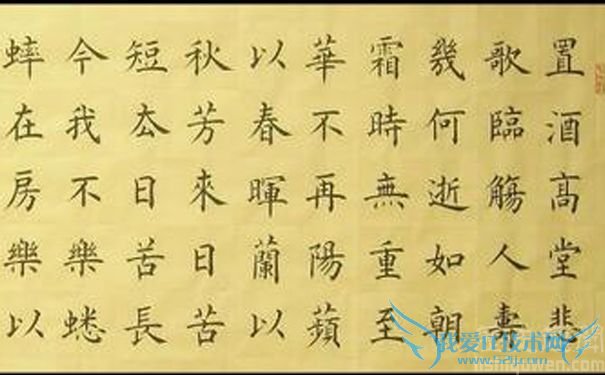 置酒高堂悲
歌臨觴人壽
幾何逝如朝
霜時無重至
華不再陽蘋
以春暉蘭以
秋芳來日苦
短去日苦長
今我不樂蟋
蟀在房樂以
我爱IT技术网